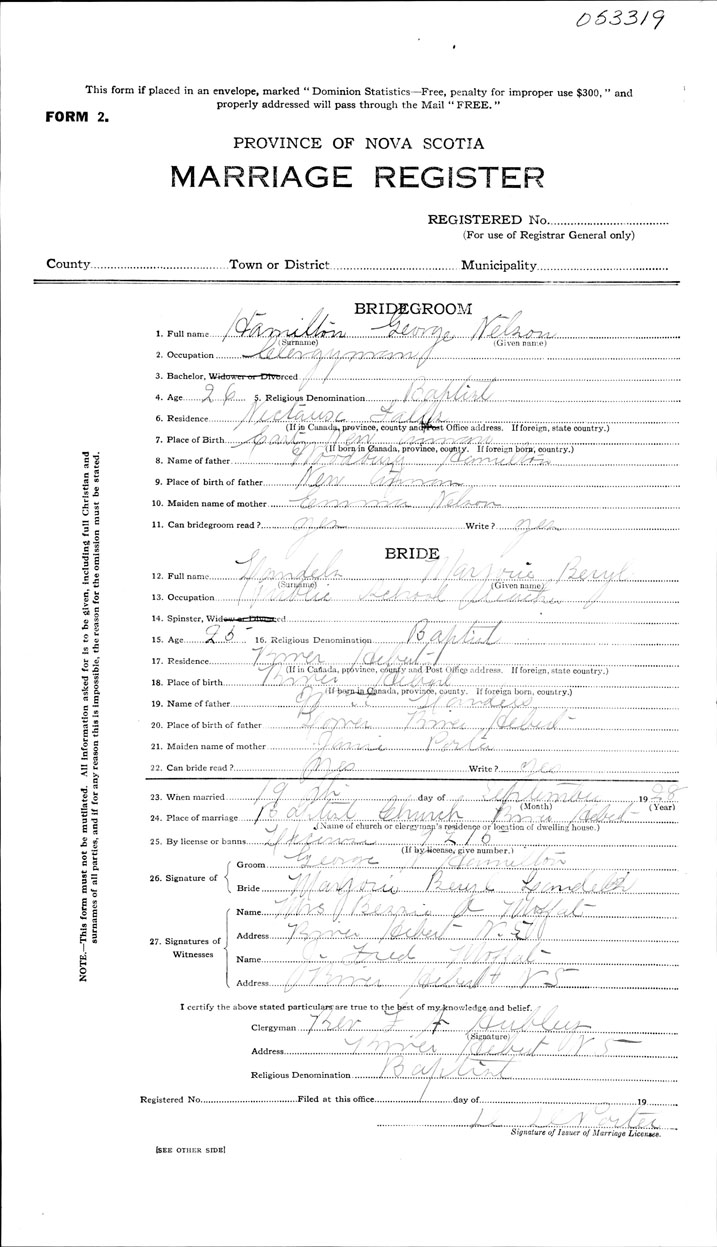 053319
This form if placed in an envelope, marked "Dominion Statistics—Free, penalty for improper use $300," and
properly addressed will pass through the Mail "FREE."
FORM 2.
PROVINCE OF NOVA SCOTIA
MARRIAGE REGISTER
REGISTERED No.
(For use of Registrar General only)
County Town or District Municipality
NOTE.—This form must not be mutilated. All information asked for is to be given, including full Christian and
surnames of all parties, and if for any reason this is impossible, the reason for the omission must be stated.
BRIDEGROOM
1. Full name Hamilton George Nelson
(Surname) (Given name)
2. Occupation Clergyman
3. Bachelor, Widower or Divorced
4. Age 26 5. Religious Denomination Baptist
6. Residence Nictaux Falls
(If in Canada, province, county and Post Office address. If foreign, state country.)
7. Place of Birth
(If born in Canada, province, county. If foreign born, country.)
8. Name of father Woodbury Hamilton
9. Place of birth of father New
10. Maiden name of mother Emma Nelson
11. Can bridegroom read? yes Write? yes
BRIDE
12. Full name Marjorie Beryl
(Surname) (Given name)
13. Occupation Public School Teacher
14. Spinster, Widow or Divorced
15. Age 25 16. Religious Denomination Baptist
17. Residence River Hebert
(If in Canada, province, county and Post Office address. If foreign, state country.)
18. Place of birth River Hebert
(If born in Canada, province, county. If foreign born, country.)
19. Name of father
20. Place of birth of father Lower River Hebert
21. Maiden name of mother Porter
22. Can bride read? yes Write? yes
23. When married 19th day of September 1928
(Month) (Year)
24. Place of marriage Baptist Church River Hebert
(Name of church or clergyman's residence or location of dwelling house.)
25. By license or banns License
(If by license, give number.)
26. Signature of Groom George N Hamilton
Bride Marjorie Beryl
27. Signatures of Witnesses
Name Mrs Moffat
Address River Hebert N.S.
Name Fred Moffat
Address River Hebert N S
I certify the above stated particulars are true to the best of my knowledge and belief.
Clergyman Rev
(Signature)
Address River Hebert N S
Religious Denomination Baptist
Registered No. Filed at this office day of 19
Porter
Signature of Issuer of Marriage Licenses.
[SEE OTHER SIDE]